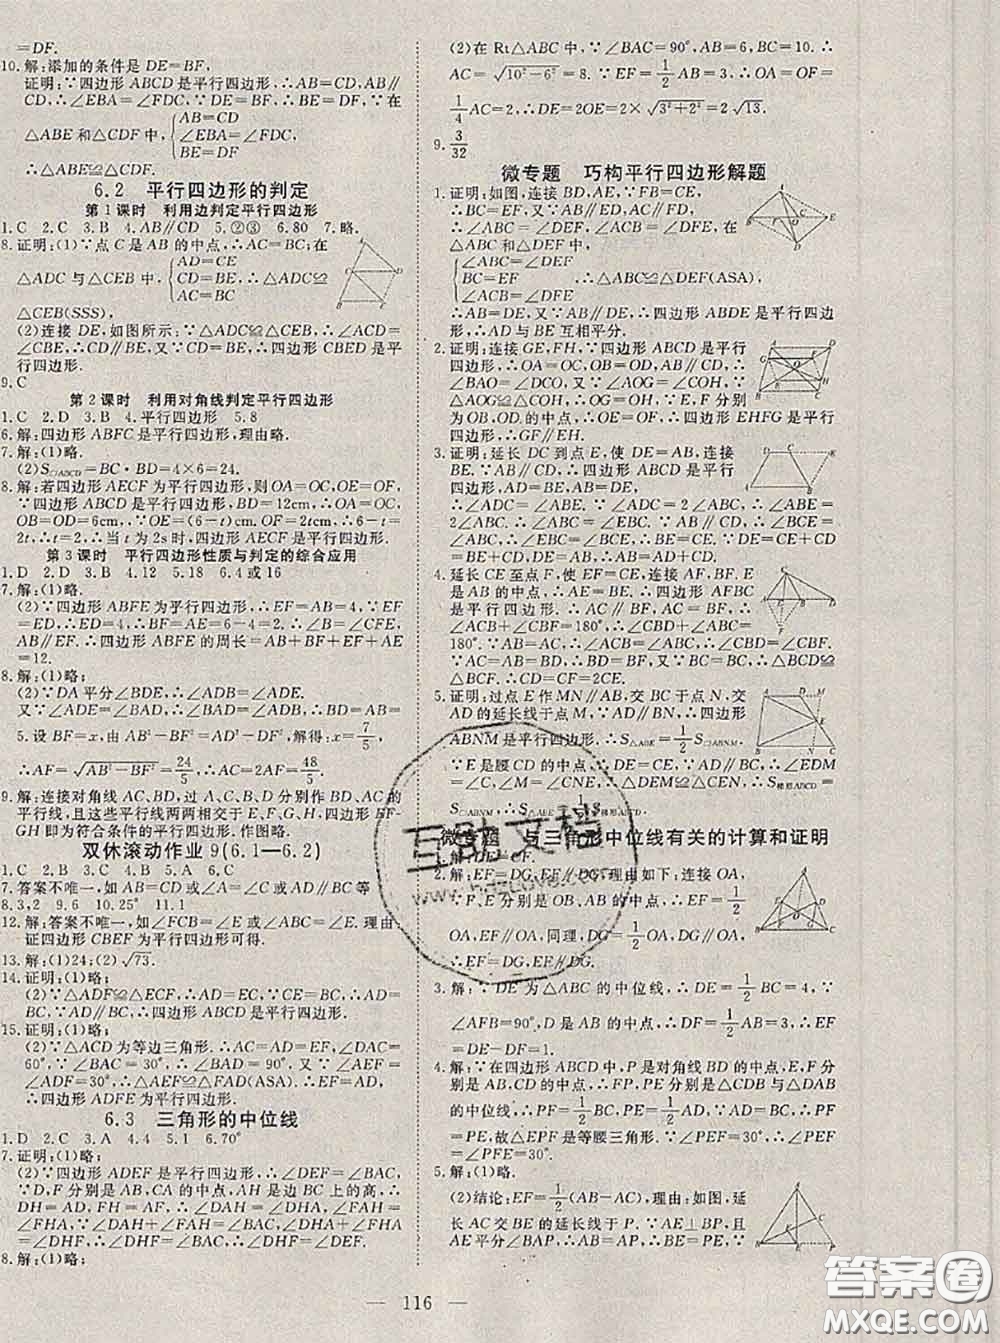 =DF.
10.解:添加的条件是 DE=BF,
证明:∵四边形 ABCD 是平行四边形,∴AB=CD,AB∥
CD,∴∠EBA=∠FDC,∵DE=BF,∴BE=DF,∵在
△ABE 和△CDF 中,{AB=CD
∠EBA=∠FDC,
BE=DF
∴△ABE≌△CDF.
6.2 平行四边形的判定
第1课时 利用边判定平行四边形
1.C 2.D 3.B 4.AB∥CD 5.②③ 6.80 7.略.
8.证明:(1)∵点 C 是 AB 的中点,∴AC=BC;在
△ADC 与△CEB 中,{AD=CE
CD=BE,∴△ADC≌
AC=BC
△CEB(SSS),
(2)连接 DE,如图所示:∵△ADC≌△CEB,∴∠ACD=
∠CBE,∴CD∥BE,又∵CD=BE,∴四边形 CBED 是平
行四边形.
9.C
第2课时 利用对角线判定平行四边形
1.C 2.D 3.B 4.平行四边形 5.8
6.解:四边形 ABFC 是平行四边形,理由略.
7.解:(1)略.
(2)S□ABCD=BC·BD=4×6=24.
8.解:若四边形 AECF 为平行四边形,则 OA=OC,OE=OF,
∵四边形 ABCD 为平行四边形,BD=12cm,∴OA=OC,
OB=OD=6cm,∵OE=(6-t)cm,OF=2tcm,∴6-t=
2t,∴t=2,∴当 t 为2s时,四边形 AECF 是平行四边形.
第3课时 平行四边形性质与判定的综合应用
1.D 2.D 3.B 4.12 5.18 6.4或16
7.解:(1)略.
(2)∵四边形 ABFE 为平行四边形,∴EF=AB=4,∵EF
=ED,∴ED=4,∴AE=BF=6-4=2,∴∠B=∠CFE,
AB=EF,∴四边形 ABFE 的周长=AB+BF+EF+AE
=12.
8.解:(1)略;
(2)∵DA 平分∠BDE,∴∠ADE=∠BDA.
又∵∠ADE=∠BAD,∴∠BAD=∠BDA,∴BD=AB=
5.设 BF=x,由 AB²-BF²=AD²-DF²,解得:x=7/5,
∴AF=√(AB²-BF²)=24/5,∴AC=2AF=48/5.
9.解:连接对角线 AC、BD,过 A、C、B、D 分别作 BD、AC 的
平行线,且这些平行线两两相交于 E、F、G、H,四边形 EF-
GH 即为符合条件的平行四边形.作图略.
双休滚动作业9(6.1—6.2)
1.C 2.B 3.C 4.A 5.A 6.C
7.答案不唯一,如 AB=CD 或∠A=∠C 或 AD∥BC 等
8.3,2 9.6 10.25° 11.1
12.解:答案不唯一,如∠FCB=∠E 或 AB=AE 等.理由:
证四边形 CBEF 为平行四边形可得.
13.解:(1)24;(2)√73.
14.证明:(1)略;
(2)∵△ADF≌△ECF,∴AD=EC,∵CE=BC,∴AD=
BC,∵AD∥BC,∴四边形 ABCD 是平行四边形.
15.证明:(1)略;
(2)∵△ACD 为等边三角形,∴AC=AD,∠DAC=
60°,∵∠BAC=30°,∴∠FAE=∠BAC,又∵∠AEF=
∠ADF=30°,∴△AEF≌△FAD(ASA).∴EF=AD,
∵EF∥AD,∴四边形 ADFE 是平行四边形.
6.3 三角形的中位线
1.D 2.C 3.A 4.4 5.1 6.70°
7.证明:(1)略;
(2)∵四边形 ADEF 是平行四边形,∴∠DEF=∠BAC,
∵D、F 分别是 AB、CA 的中点,AH 是边 BC 上的高,∴
DH=AD,FH=AF,∴∠DAH=∠DHA,∠FAH=
∠FHA,∵∠DAH+∠FAH=∠BAC,∠DHA+∠FHA
=∠DHF,∴∠DHF=∠BAC,∴∠DHF=∠DEF.
8.解:(1)略;
(2)在 Rt△ABC 中,∵∠BAC=90°,AB=6,BC=10.∴
AC=√(10²-6²)=8.∵EF=1/2AB=3,∴OA=OF=
1/4AC=2,∴DE=2OE=2×√(3²+2²)=2√13.
9.3/32
微专题 巧构平行四边形解题
1.证明:如图,连接 BD,AE,∵FB=CE,
∴BC=EF,又∵AB∥DE,AC∥DF,
∴∠ABC=∠DEF,∠ACB=∠DFE,
在△ABC 和△DEF 中,
{∠ABC=∠DEF
BC=EF ,∴△ABC≌△DEF(ASA),
∠ACB=∠DFE
∴AB=DE,又∵AB∥DE,∴四边形 ABDE 是平行四边
形,∴AD 与 BE 互相平分.
2.证明:连接 GE,FH,∵四边形 ABCD 是平行
四边形,∴OA=OC,OB=OD,AB∥CD,∴
∠BAO=∠DCO,又∵∠AOG=∠COH,∴
△AOG≌△COH,∴OG=OH,∵E、F 分别
为 OB、OD 的中点,∴OE=OF,∴四边形 EHFG 是平行
四边形,∴GF∥EH.
3.证明:延长 DC 到点 E,使 DE=AB,连接
BE.∵AB∥CD,AB=DE,∴四边形
ABED 是平行四边形,∴∠ABE=∠ADC,
∴∠ADC=2∠ABC,∴∠ADC=2∠ABC,∴∠ABE=
2∠ABC,∴∠ABC=∠EBC,∵AB∥CD,∴∠ABC=
∠ECB,∴∠ECB=∠EBC,∴CE=BE,∵DE=CD+CE
=BE+CD,∴AB=BE+CD.
4.延长 CE 至点 F,使 EF=CE,连接 AF,BF.E
是 AB 的中点,∴AE=BE.∴四边形 AFBC
是平行四边形.∴AC∥BF,AC=BF,∴∠ACB
+∠CBF=180°,∴∠ACB+∠CBF=180°,∴∠ABC+∠CBD=
180°.∵AB=AC,∴∠ACB=∠ABC,∴∠CBD=∠CBF.
又∵BD=AB,∴BD=BF.∵BC=BC,∴△BCD≌
△BCF.∴CD=CF=2CE.
5.证明:过点 E 作 MN∥AB,交 BC 于点 N,交
AD 的延长线于点 M,∵AD∥BN,∴四边形
ABNM 是平行四边形,∴S△ABE=1/2S□ABNM,
∵E 是腰 CD 的中点,∴DE=CE,∴∠EDM
=∠C,∴∠M=∠CNE,∴△DEM≌△CEN,∴S梯形ABCD=
S□ABNM,∴S△ABE=1/2S梯形ABCD
微专题 与三角形中位线有关的计算和证明
1.解:DE=CF.
2.解:EF=DG,EF∥DG,理由如下;连接 OA,
∵F、E 分别是 OB、AB 的中点,∴EF=1/2
OA,EF∥OA,同理,DG=1/2OA,DG∥OA,
∴EF=DG,EF∥DG.
3.解:∵DE 为△ABC 的中位线,∴DE=1/2BC=4.∵
∠AFB=90°,D 是 AB 的中点,∴DF=1/2AB=3,∴EF
=DE-DF=1.
4.解:∵在四边形 ABCD 中,P 是对角线 BD 的中点,E、F 分
别是 AB、CD 的中点,∴FP,PE 分别是△CDB 与△DAB
的中位线,∴PF=1/2BC,PE=1/2AD,∵AD=BC,∴PF=
PE,故△EFP 是等腰三角形.∵∠PEF=30°,∴∠PEF=
∠PFE=30°.
5.解:(1)略;
(2)结论:EF=1/2(AB-AC),理由:如图,延
长 AC 交 BE 的延长线于 P.∵AE⊥BP,且
AE 平分∠BAP,∴△ABP 是等腰三角形
116
互助文档
www.hdzuoye.com
答案圈
MXQE.COM